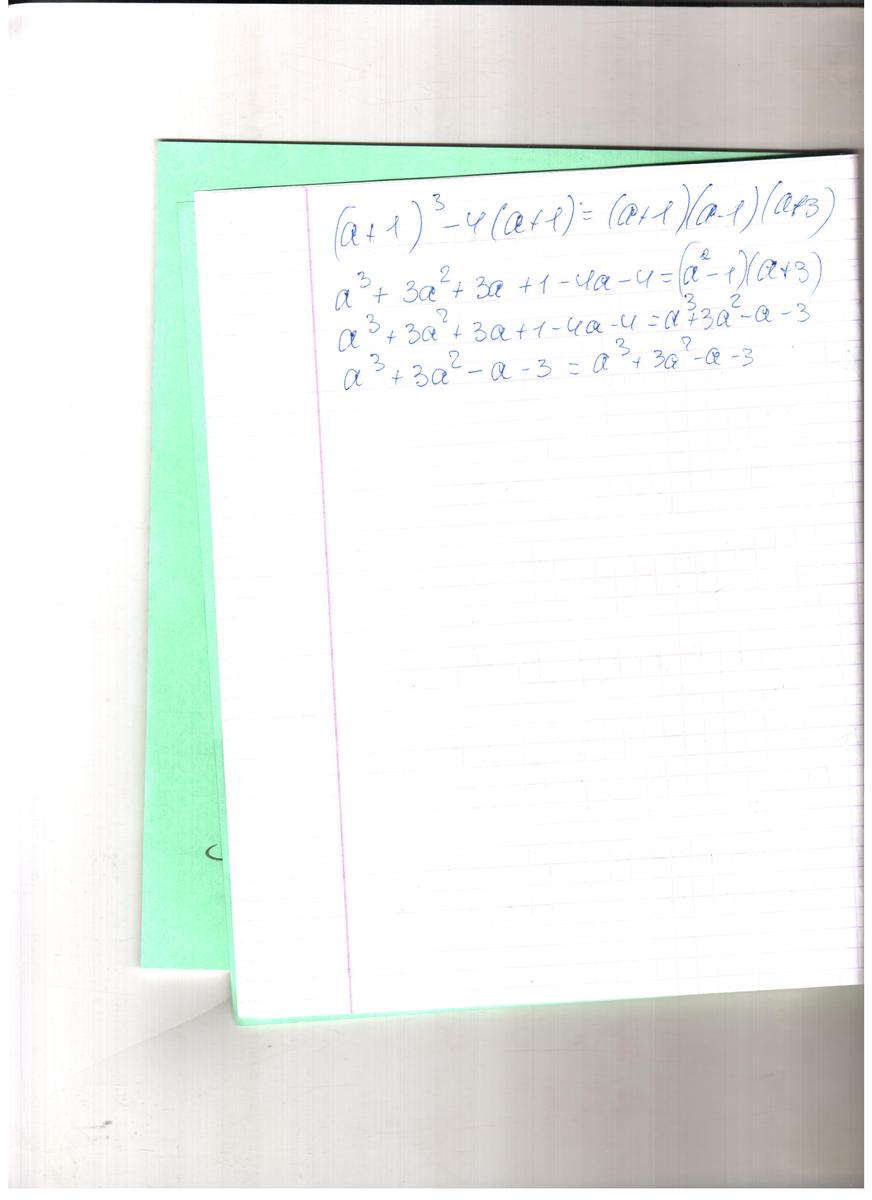 (a+1)³-4(a+1)=(a+1)(a-1)(a+3)
a³+3a²+3a+1-4a-4=(a²-1)(a+3)
a³+3a²+3a+1-4a-4=a³+3a²-a-3
a³+3a²-a-3=a³+3a²-a-3